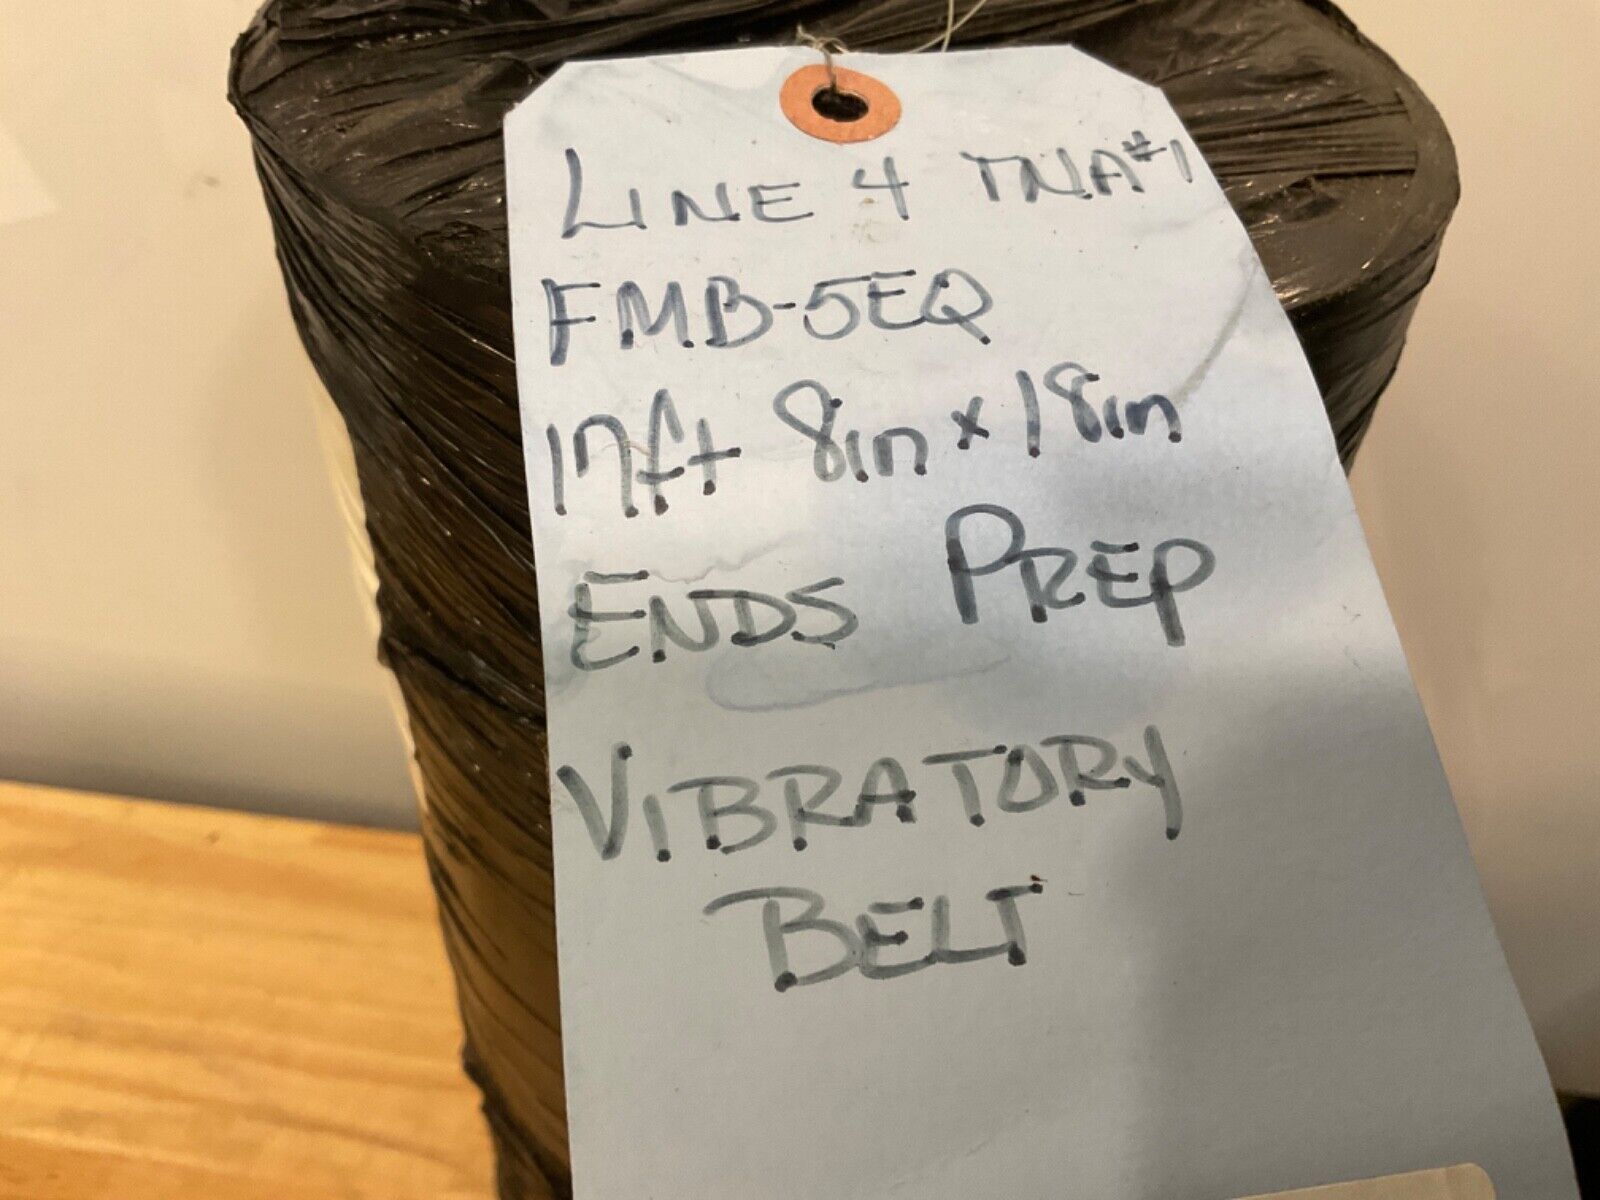 LINE 4 TNA#1
FMB-5EQ
17ft 8in x 18in
ENDS PREP
VIBRATORY
BELT